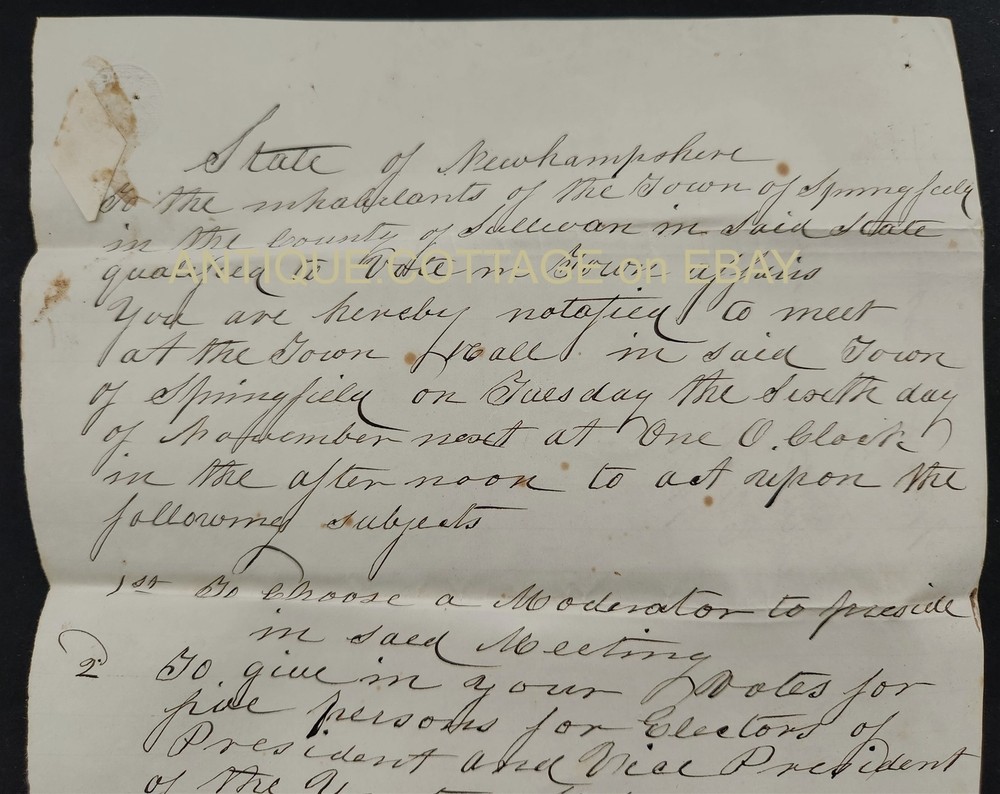 State of Newhampshire
To the inhabitants of the Town of Springfield
in the County of Sullivan in said State
qualified to Vote in Town affairs
ANTIQUE.COTTAGE on EBAY
You are hereby notafied to meet
at the Town Hall in said Town
of Springfield on Tuesday the Sixth day
of November next at One O, Clock
in the after noon to act upon the
following subjects
1st To Choose a Moderator to preside
in said Meeting
2 To give in your Votes for
five persons for Electors of
President and Vice President
of the